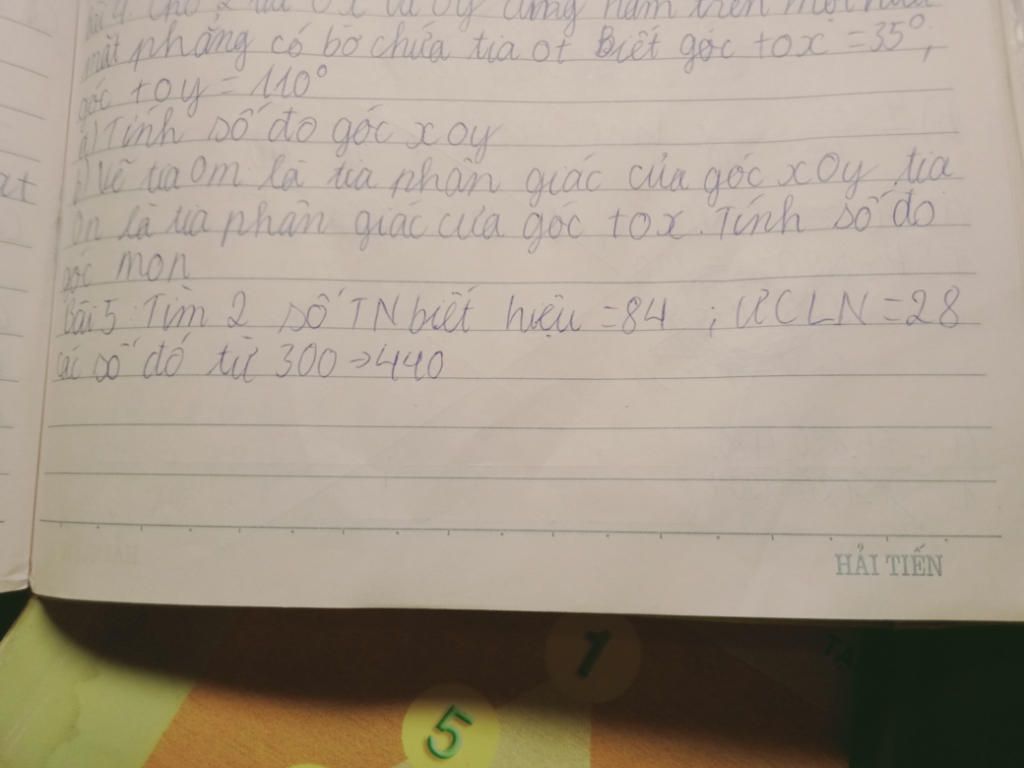 Bài 4. Cho 2 tia Ox và Oy cùng nằm trên một nửa
mặt phẳng có bờ chứa tia ot Biết góc tox = 35°;
góc toy = 110°
a) Tính số đo góc xoy
b) Vẽ tia Om là tia phân giác của góc xOy tia
On là tia phân giác của góc tox. Tính số đo
góc mon
Bài 5: Tìm 2 số TN biết hiệu = 84 ; ƯCLN = 28
các số đó từ 300 → 440
at
HẢI TIẾN
1
5